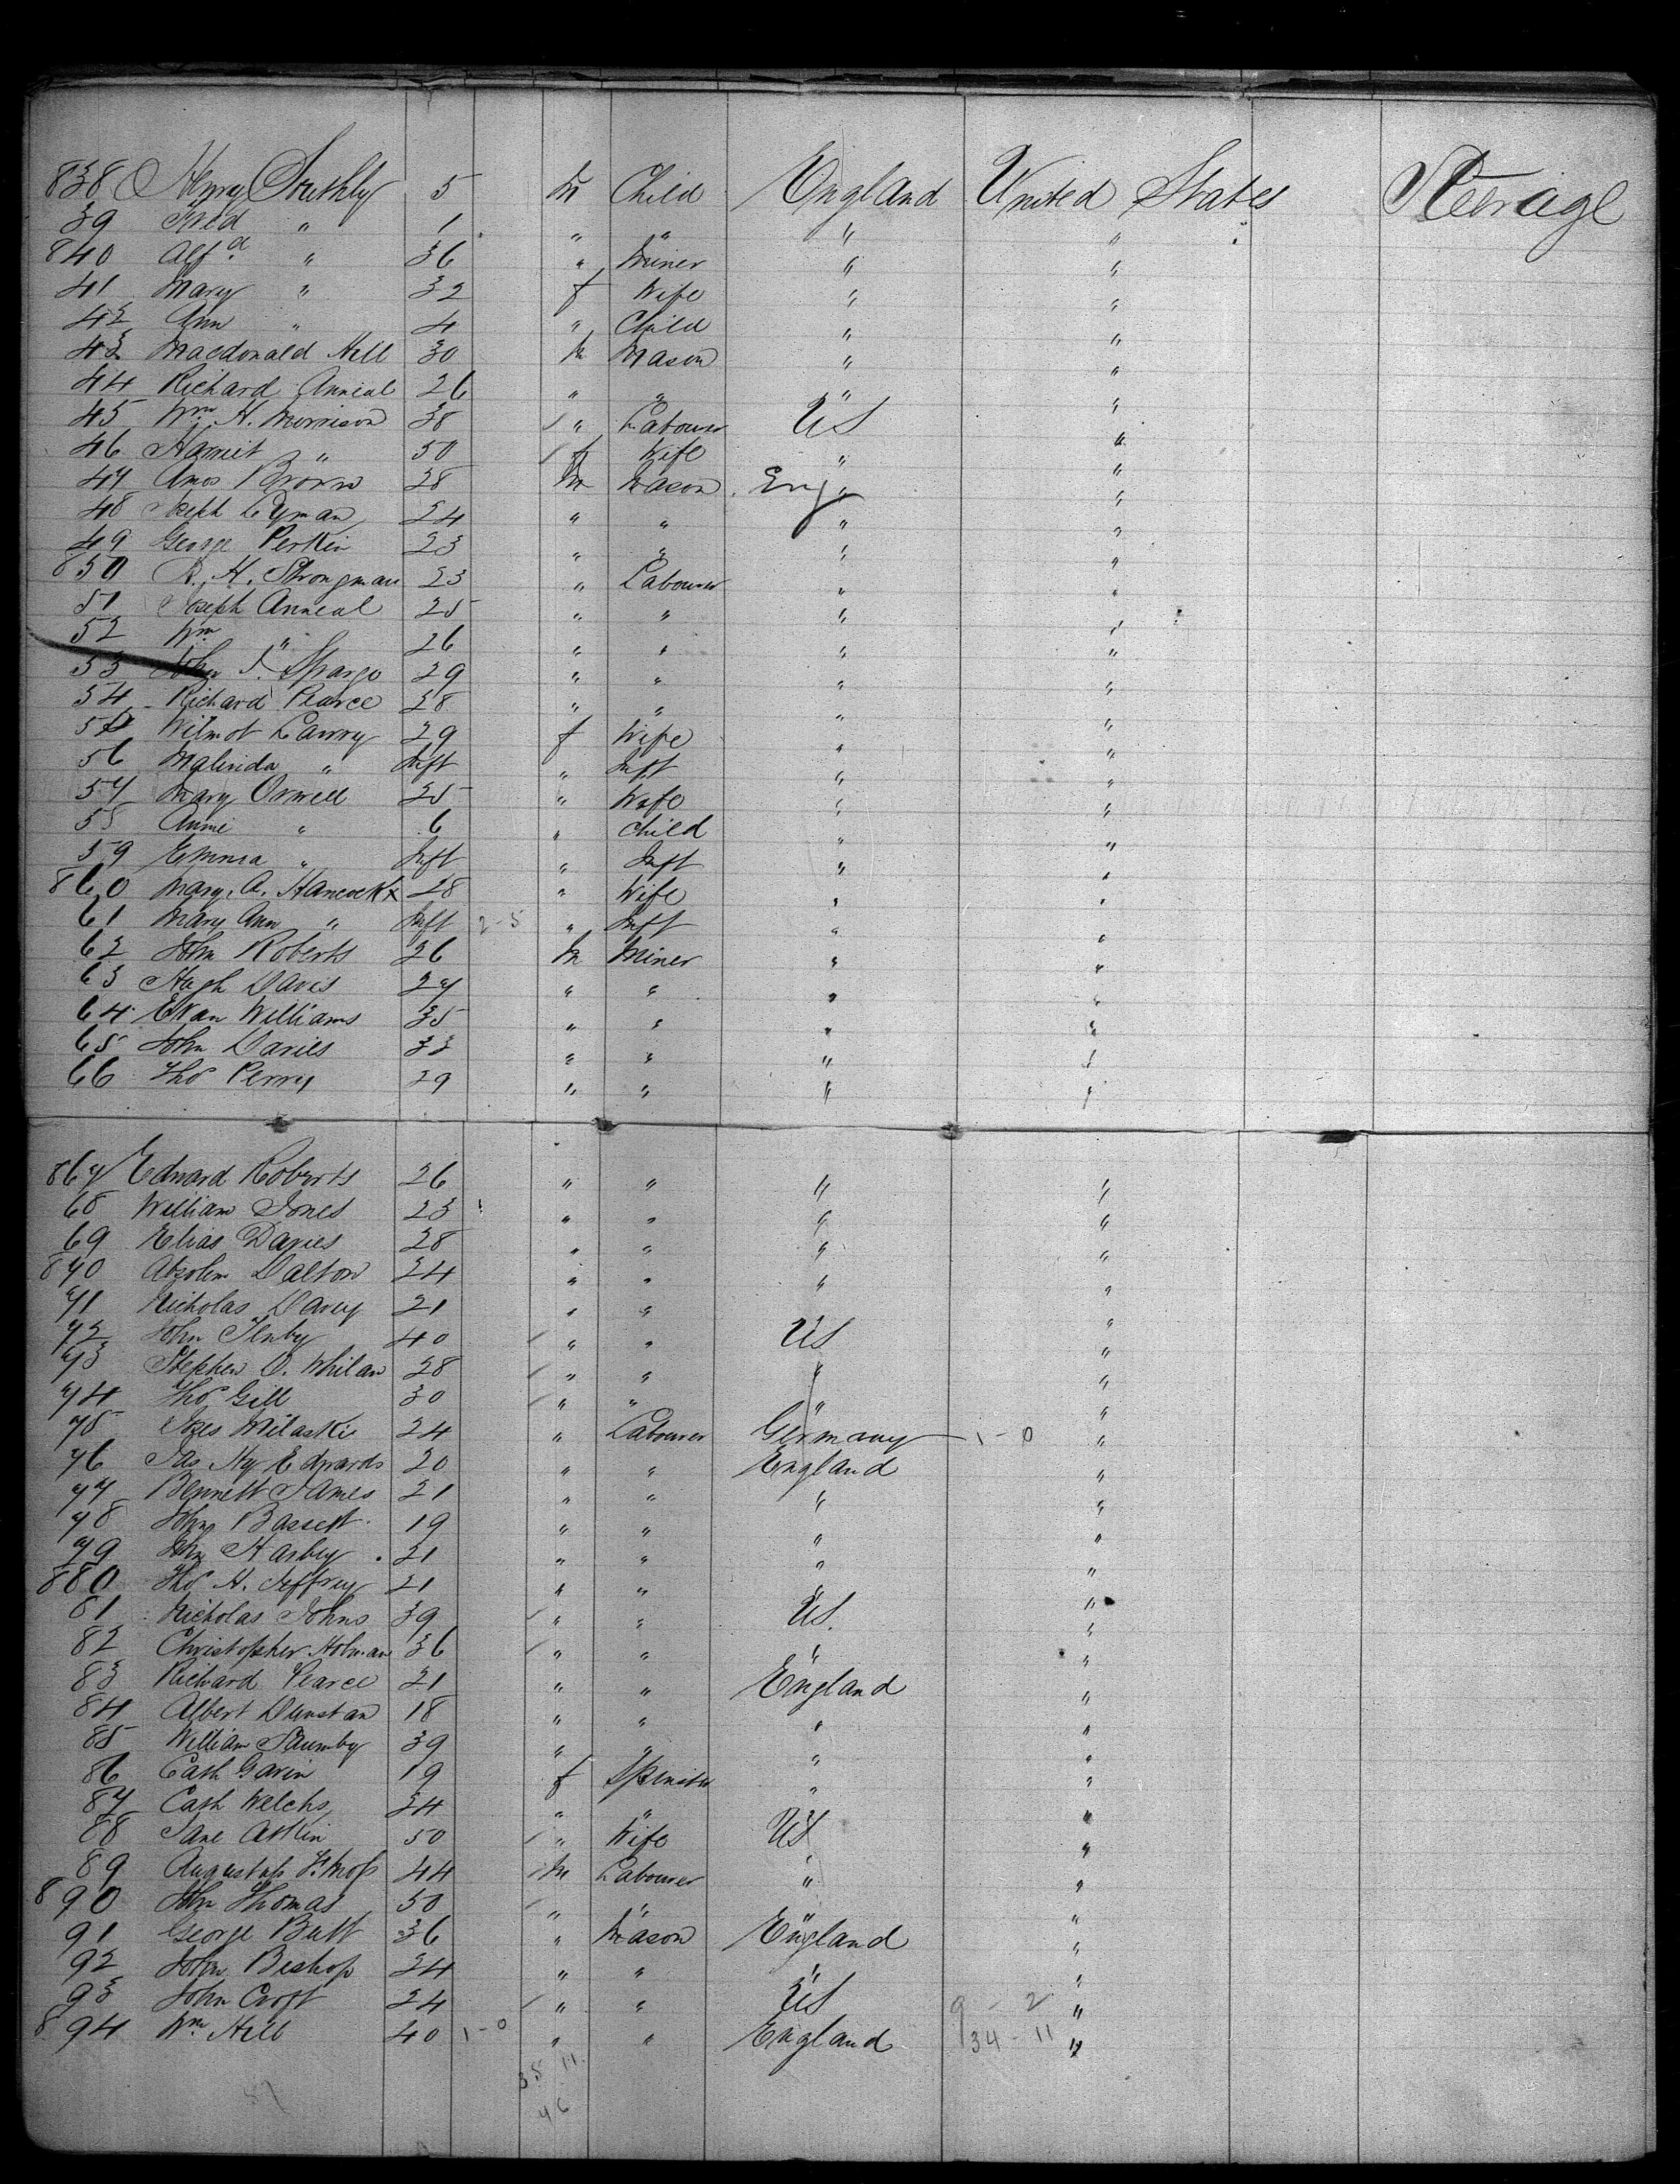 838 Henry Southly 5 m Child England United States Steerage
39 Fred " 1 " " " "
840 Alfd " 36 " Miner " "
41 Mary " 32 f Wife " "
42 Ann " 4 " Child " "
43 Macdonald Hill 30 m Mason " "
44 Richard Anneal 26 " " " "
45 Wm H. Morrison 38 / " Labourer US "
46 Harriet " 50 / f Wife " "
47 Amos Brown 28 m Mason Eng "
48 Joseph Lyman 24 " " " "
49 George Perkin 23 " " " "
850 R. H. Strongman 23 " Labourer " "
51 Joseph Anneal 25 " " " "
52 Wm " 26 " " " "
53 John J. Spargo 29 " " " "
54 Richard Pearce 28 " " " "
55 Wilmot Lawry 29 f Wife " "
56 Malinda " Inft " Inft " "
57 Mary Orwell 25 " Wife " "
58 Annie " 6 " Child " "
59 Emma " Inft " Inft " "
860 Mary A. Hancock x 28 " Wife " "
61 Mary Ann " Inft 2-5 " Inft " "
62 John Roberts 26 m Miner " "
63 Hugh Davis 27 " " " "
64 Evan Williams 35 " " " "
65 John Davies 33 " " " "
66 Thos Perry 29 " " " "
867 Edward Roberts 26 " " " "
68 William Jones 23 " " " "
69 Elias Davies 28 " " " "
870 Absolem Dalton 24 " " " "
71 Nicholas Davey 21 " " " "
72 John Tenby 40 / " " US "
73 Stephen O. Whilan 28 / " " " "
74 Thos Gill 30 / " " " "
75 Milaskie 24 " Labourer Germany 1-0 "
76 Jas Hy Edwards 20 " " England "
77 Bennett James 21 " " " "
78 John Bassett 19 " " " "
79 John Harbey 21 " " " "
880 Thos H. Jeffrey 21 " " " "
81 Nicholas Johns 39 / " " US "
82 Christopher Holman 36 / " " " "
83 Richard Pearce 21 " " England "
84 Albert Dunstan 18 " " " "
85 William Saumby 39 " " " "
86 Cath Gavin 19 f Spinster " "
87 Cath Welchs 24 " " " "
88 Jane Atkin 50 / " Wife US "
89 44 / m Labourer " "
890 John Thomas 50 / " " " "
91 George Butt 36 " Mason England "
92 John Bishop 24 " " " "
93 John Croft 24 / " " US 9-2 "
894 Wm Hill 40 1-0 " " England 34-11 "
35 11
46